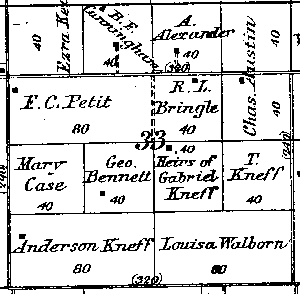 Ezra Ke
40
B.F.
Cunningham
40
A.
Alexander
40
(320)
Chas. Austin
40
40
F. C. Petit
80
R. L.
Bringle
40
33
(240)
Mary
Case
40
Geo.
Bennett
40
Heirs of
Gabriel
Kneff
40
T.
Kneff
40
(240)
Anderson Kneff
80
Louisa Walborn
80
(320)